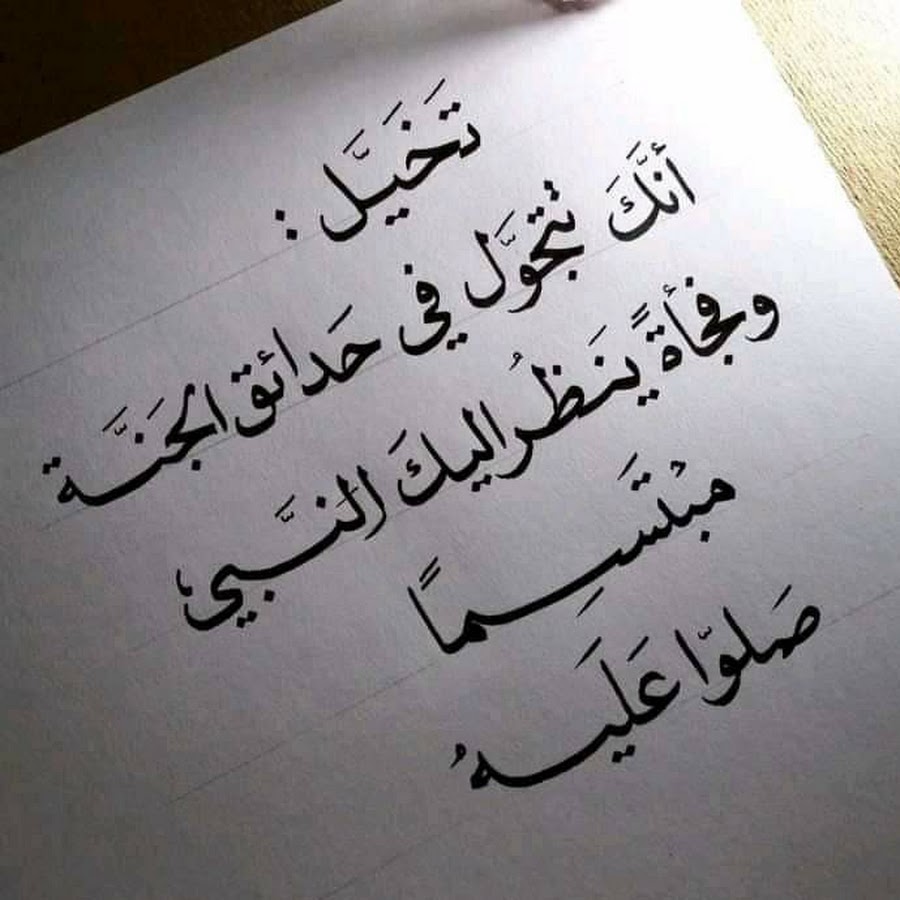 تَخَيَّل :
أنَّكَ تتجَوَّل في حَدائق الجَنَّة
وفجأةً يَنظُر اليكَ النَّبي
مُبْتَسِمًا
صَلوّا عَلَيهُ